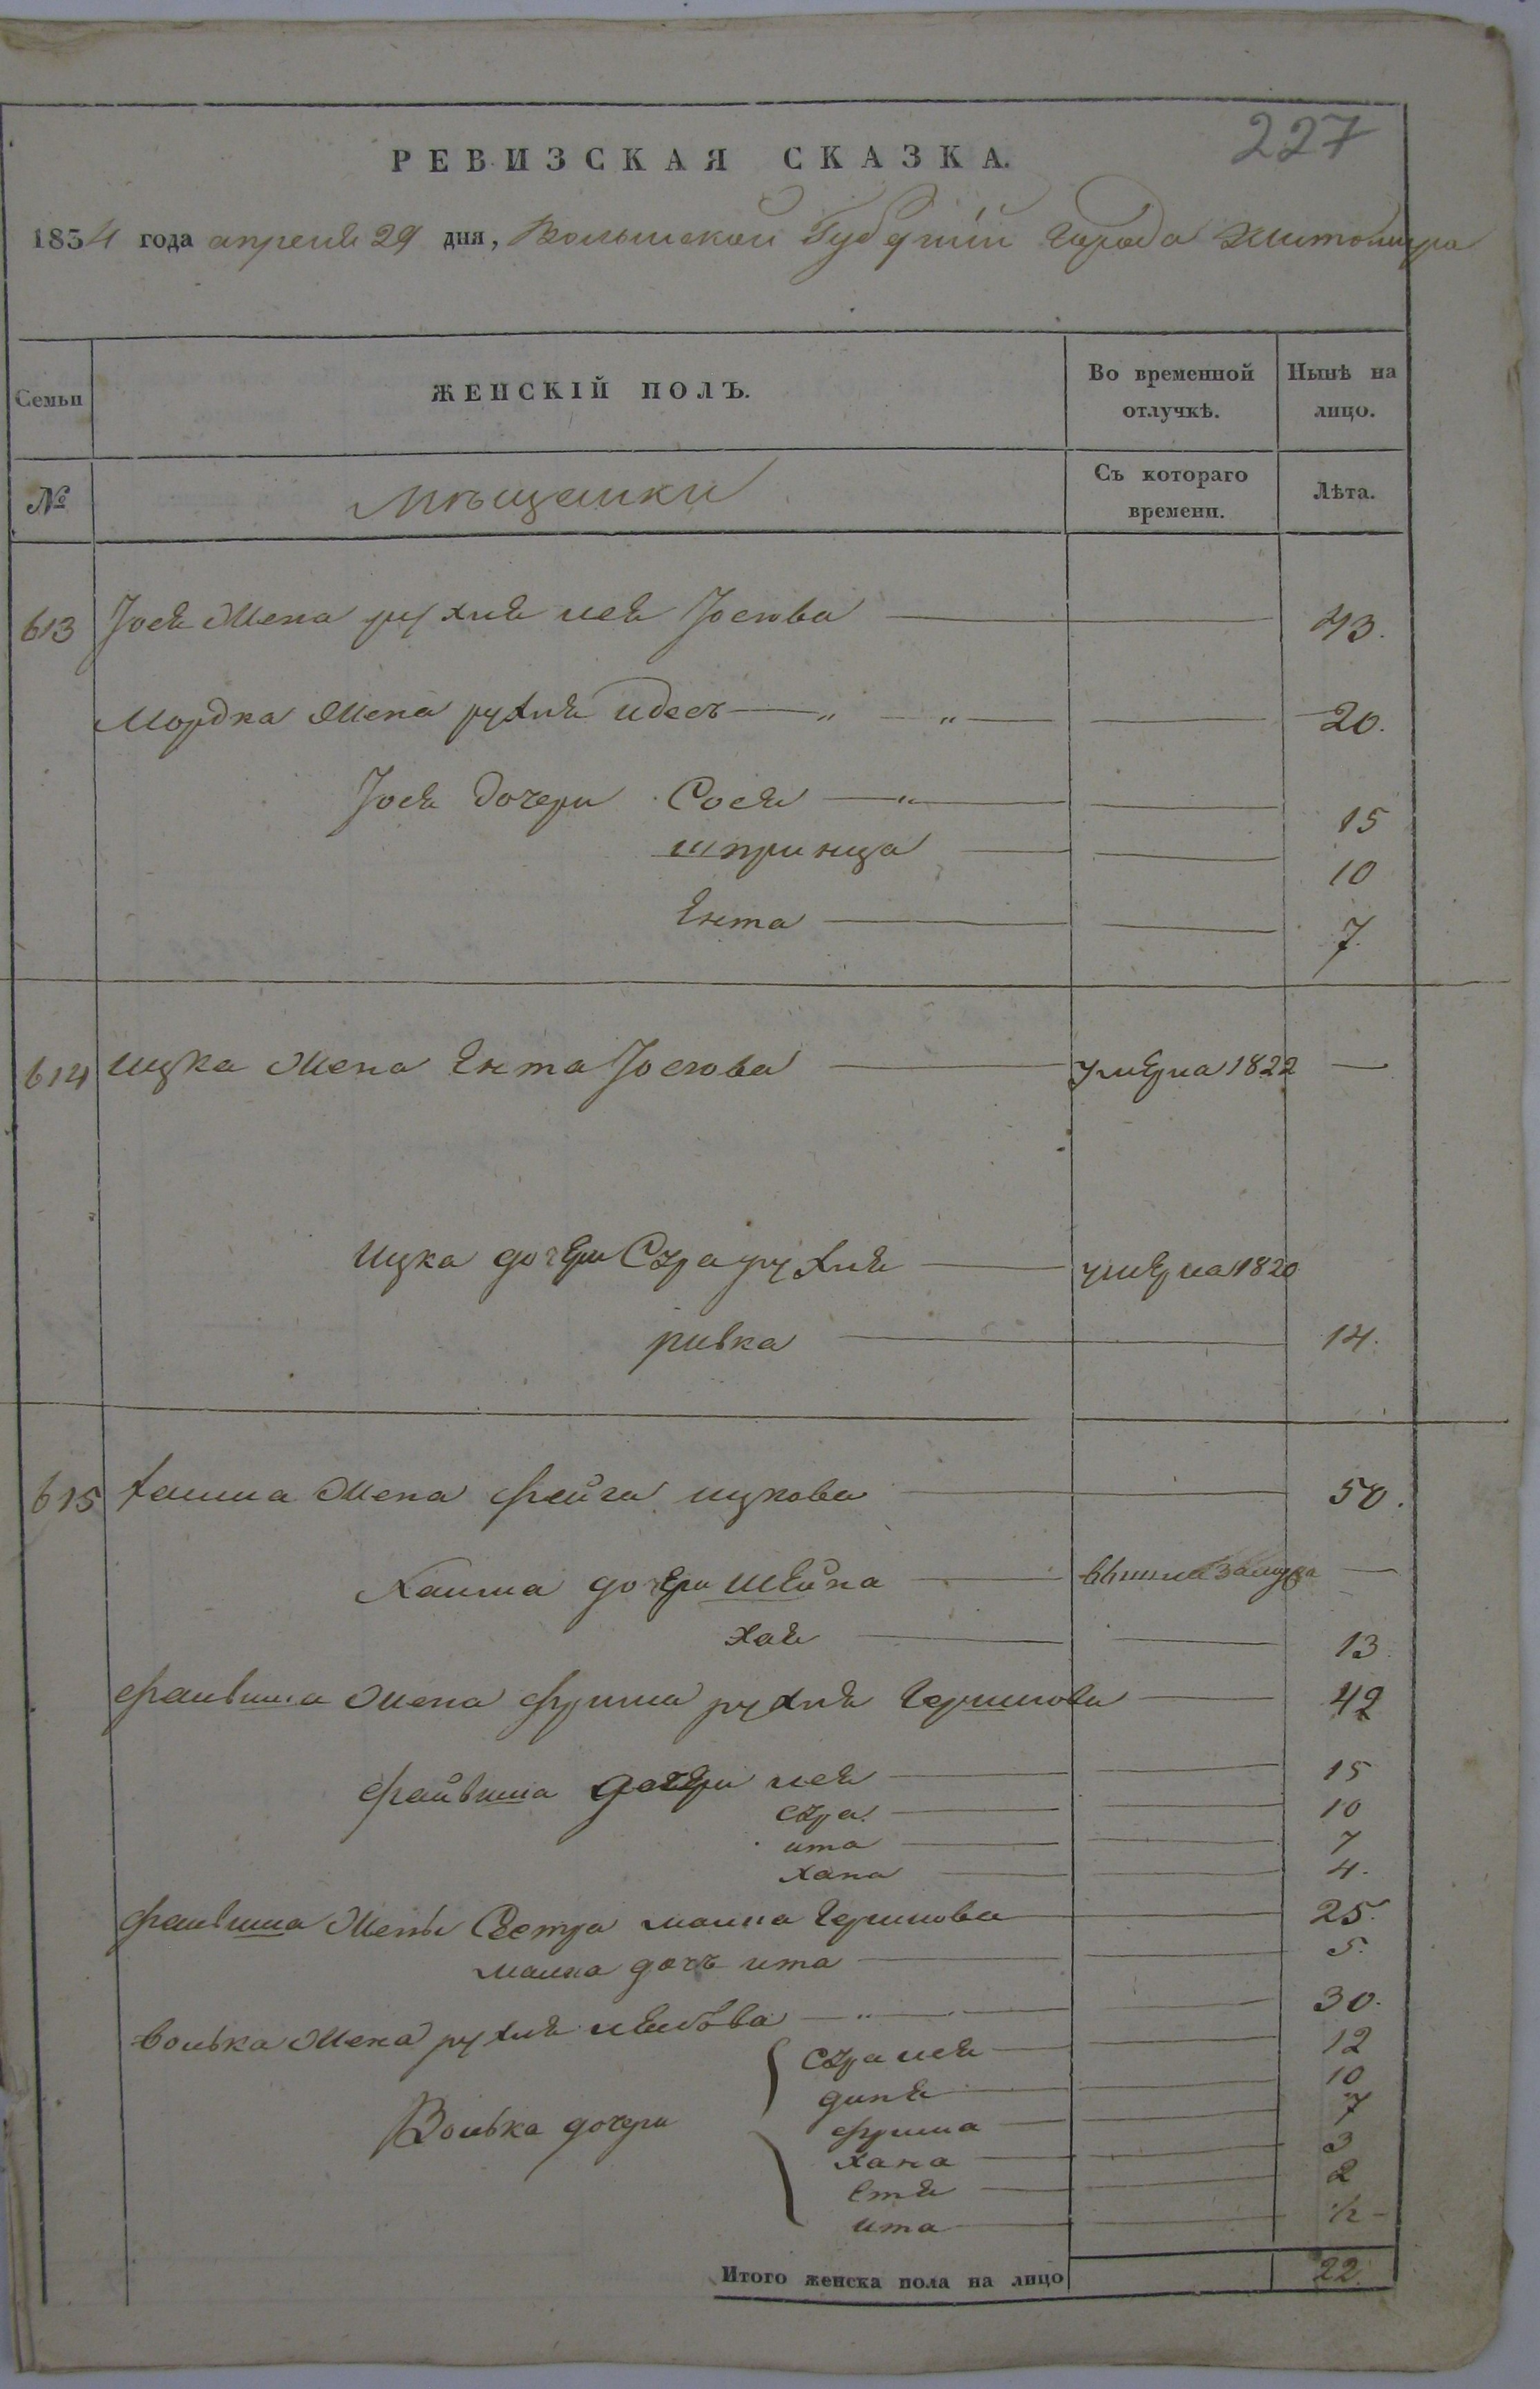 227
РЕВИЗСКАЯ СКАЗКА.
1834 года апреля 29 дня, Волынской Губернiи Города Житомира
Семьи
ЖЕНСКІЙ ПОЛЪ.
Во временной отлучкѣ.
Нынѣ на лицо.
№
Мѣщанки
Съ котораго времени.
Лѣта.
613 Iося Жена рухля лея Iосiова 43.
Мордка Жена рухля идесъ — „ — „ — 20.
Iося дочери Сося — „ — 15
шпринца 10
Ента 7.
614 ицка Жена Ента Iосiова умерла 1822 —
ицка дочери Сура рухля умерла 1820
ривка 14.
615 хаима Жена фейга ицкова 50.
Хаима дочери шейна вышла Замужъ —
хая 13.
файвиша Жена фрима рухля Гершкова 42
файвиша дочери лея 15
сура 10
ита 7
хана 4.
файвиша Жены Сестра малка Гершкова 25.
малка дочь ита 5.
волька Жена рухля лейбова — „ — 30.
Волька дочери
сура лея 12
диня 10
фрима 7
хана 3
Етя 2
ита 1/2 -
Итого женска пола на лицо 22.